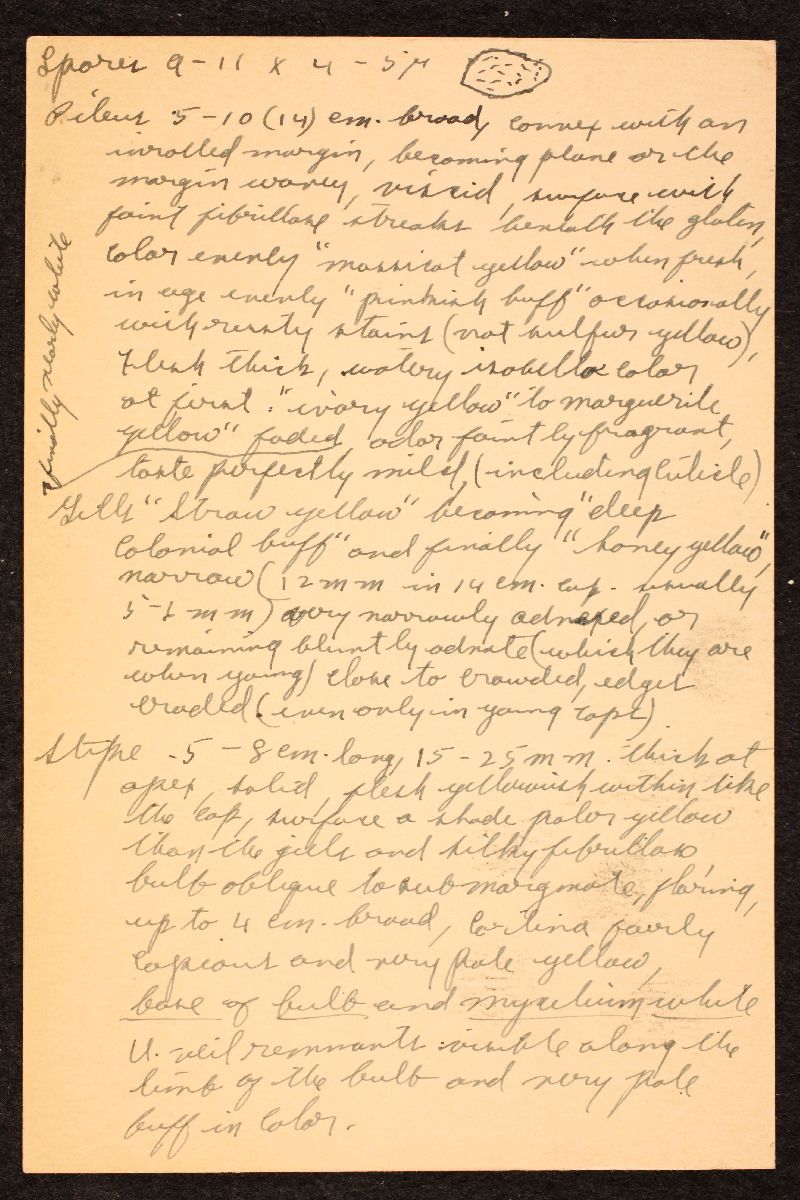 Spores 9-11 x 4-5μ
Pileus 5-10(14) cm. broad, convex with an
inrolled margin, becoming plane or the
margin wavey, viscid, surface with
faint fibrillose streaks beneath the gluten,
color evenly "massicot yellow" when fresh,
in age evenly "pinkish buff" occasionally
with rusty stains (not sulfur yellow),
flesh thick, watery isabella color
at first: "ivory yellow" to marguerite
yellow" faded, odor faintly fragrant,
taste perfectly mild, (including cuticle)
finally nearly white
Gills "straw yellow" becoming "deep
colonial buff" and finally "honey yellow",
narrow (12 mm in 14 cm. cap. usually
mm) very narrowly adnexed, or
remaining bluntly adnate (which they are
when young) close to crowded, edges
eroded (even only in young caps)
Stipe 5-8 cm. long, 15-25 mm. thick at
apex, solid, flesh yellowish within like
the cap, surface a shade paler yellow
than the gills and silky fibrillose
bulb oblique to submarginate, flaring,
up to 4 cm. broad, cortina fairly
copious and very pale yellow,
base of bulb and mycelium white
U. veil remnants visible along the
limb of the bulb and very pale
buff in color.